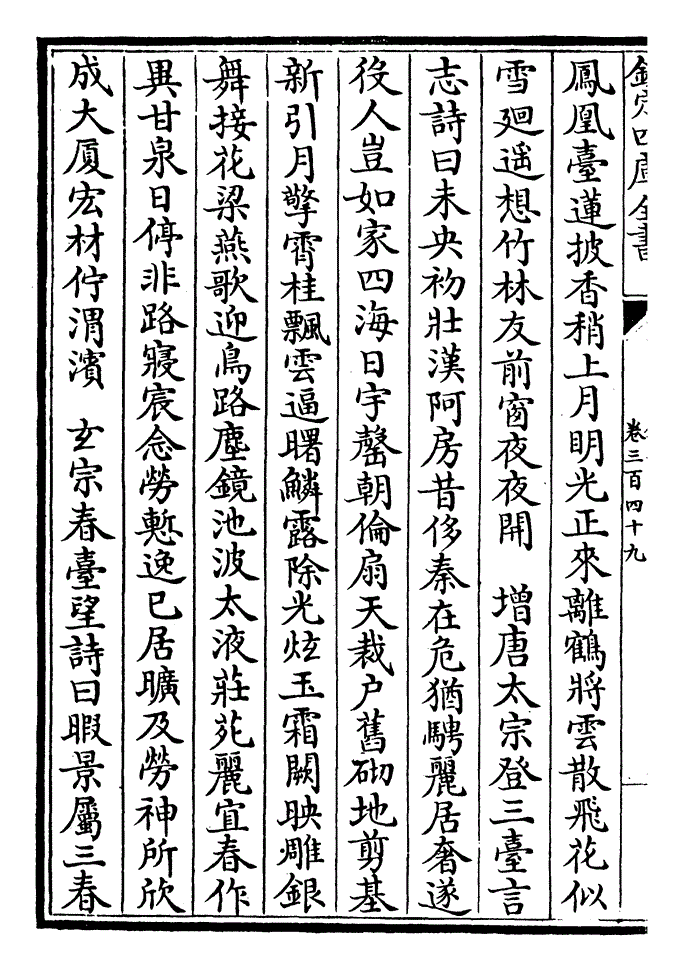 欽定四庫全書
卷三百四十九
鳳凰臺蓮披香稍上月明光正來離鶴將雲散飛花似
雪廻遥想竹林友前窗夜夜開　增唐太宗登三臺言
志詩曰未央初壯漢阿房昔侈秦在危猶騁麗居奢遂
役人豈如家四海日宇罄朝倫扇天裁户舊砌地剪基
新引月擎霄桂飄雲逼曙鱗露除光炫玉霜闕映雕銀
舞接花梁燕歌迎鳥路塵鏡池波太液莊苑麗宜春作
異甘泉日停非路寢宸念勞慙逸已居曠及勞神所欣
成大厦宏材佇渭濱　玄宗春臺望詩曰暇景屬三春